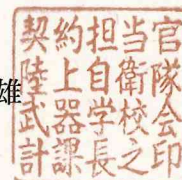 雄
契約担当官
陸上自衛隊
武器学校会
計課長之印